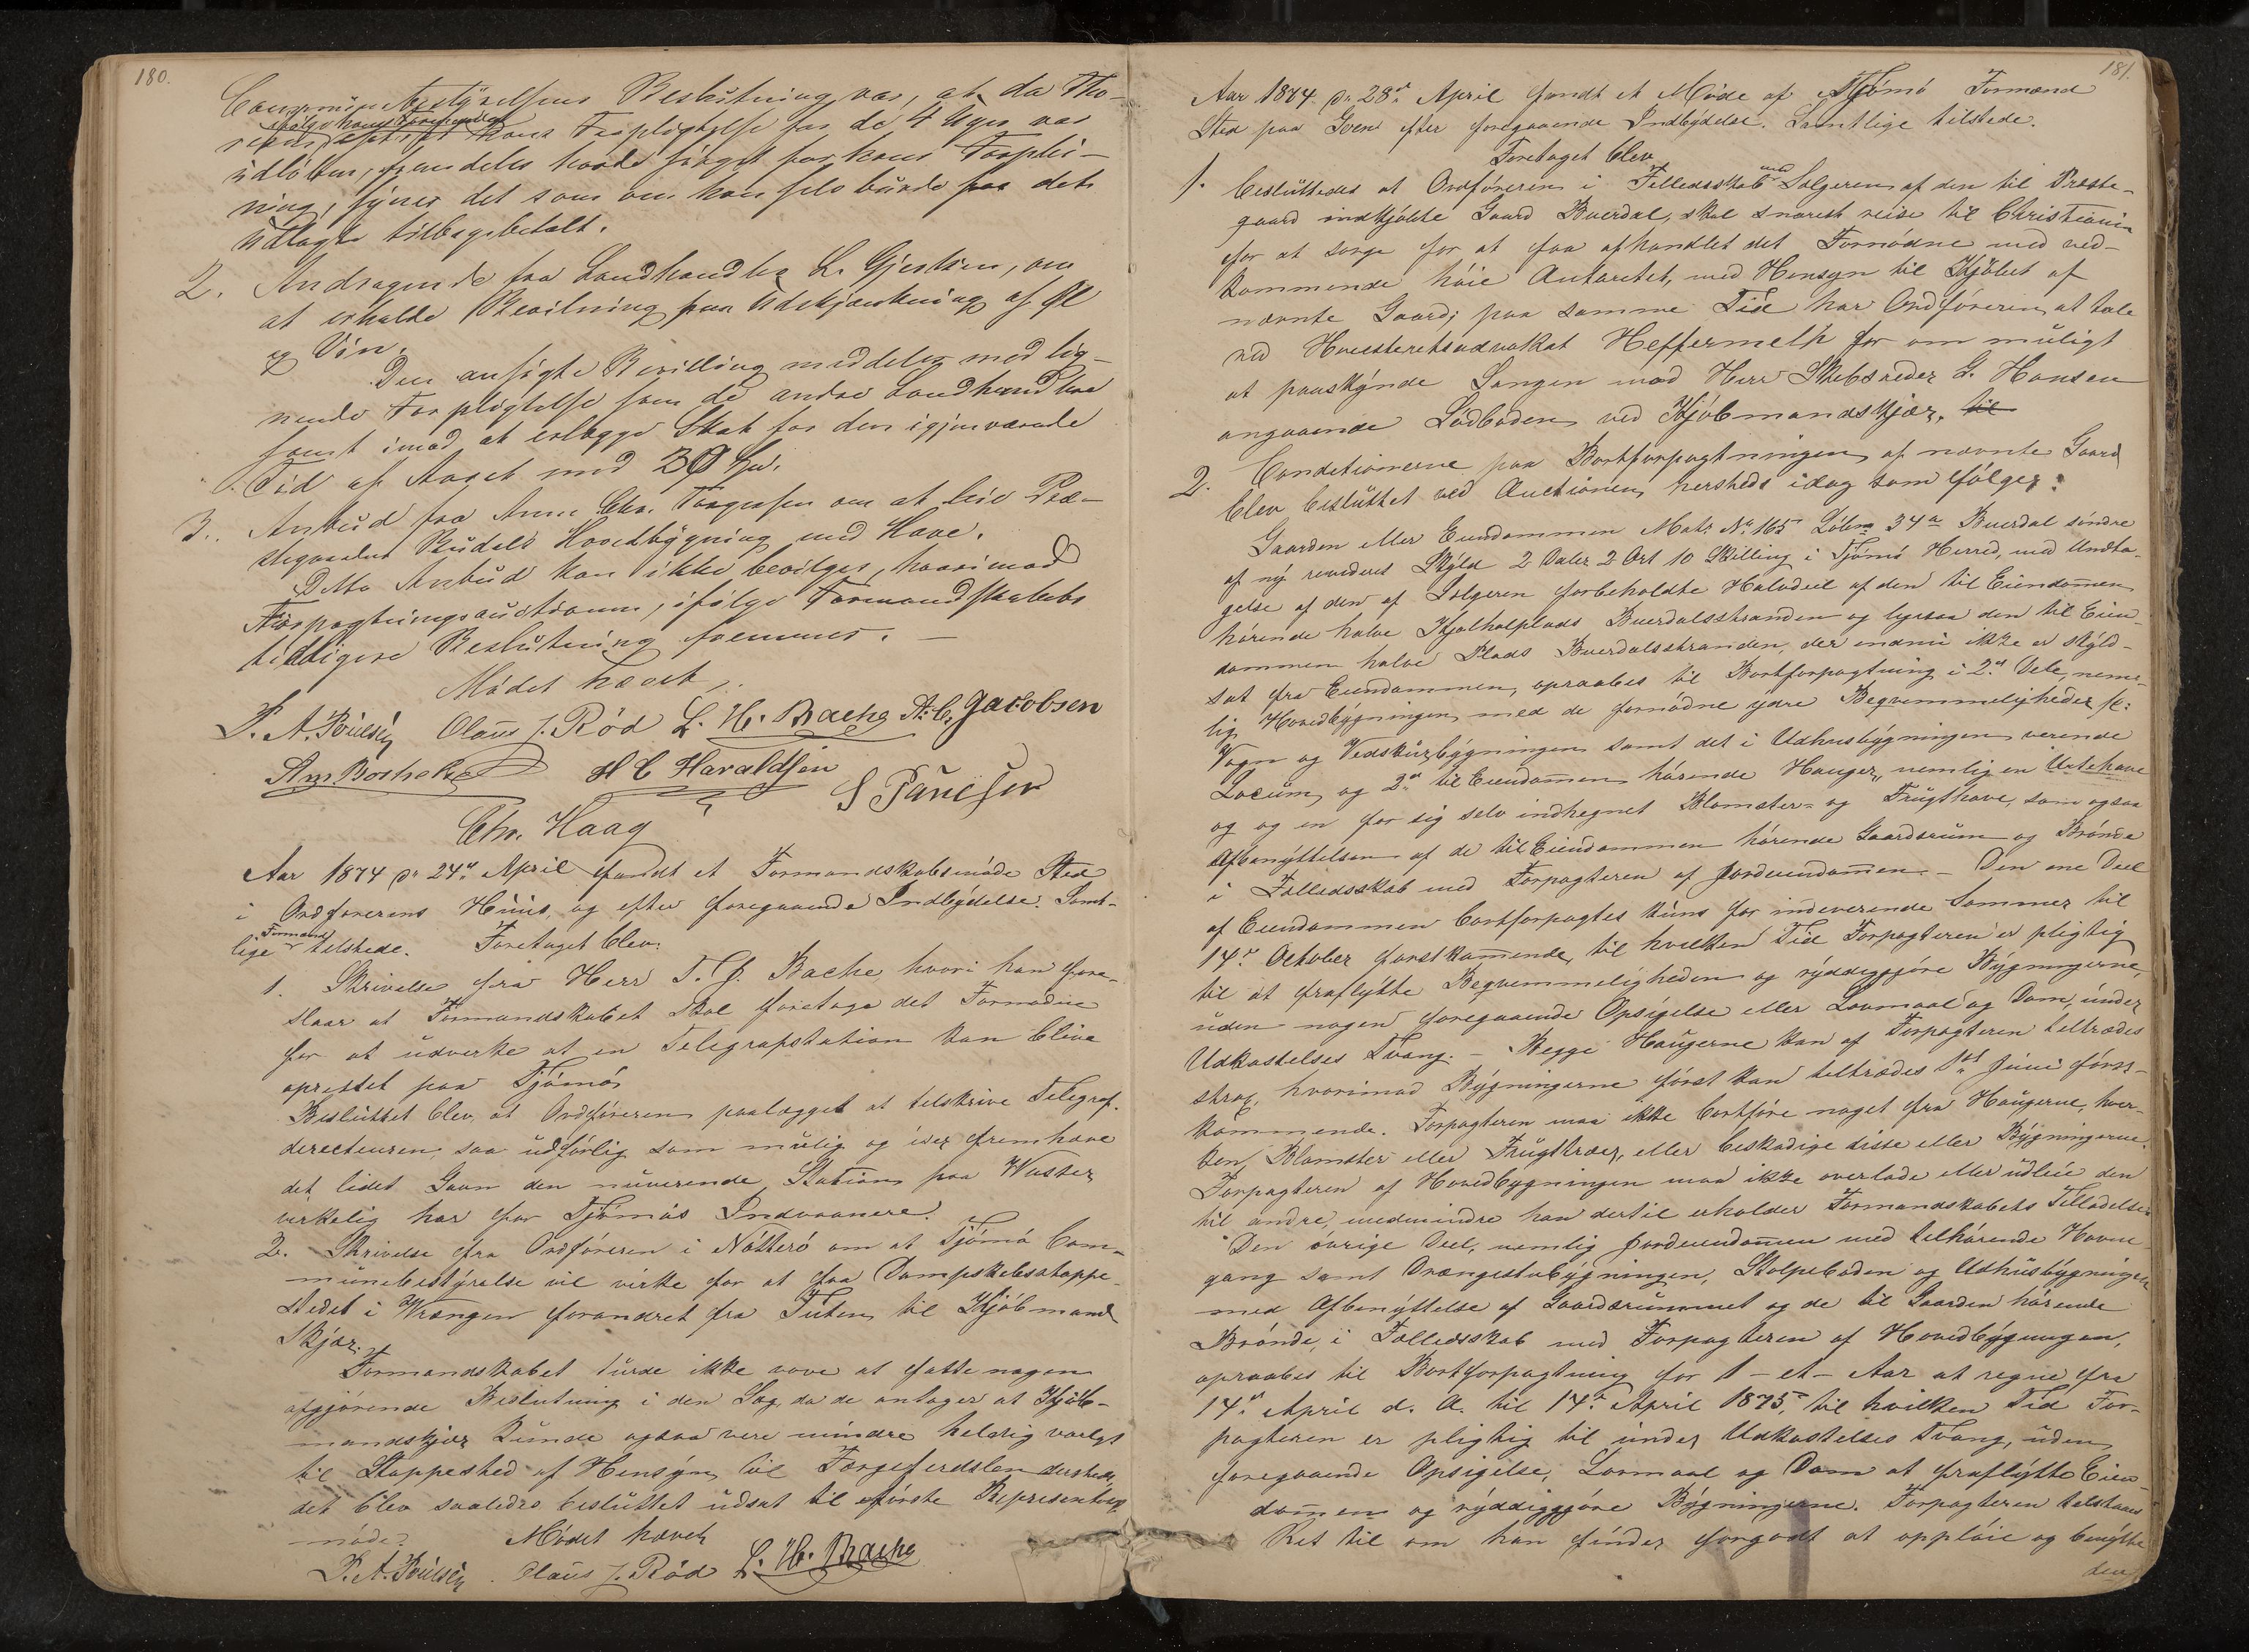 180.
Communebestyrelsens Beslutning var, at da Tho-
ifølge hans Forpligtelse for de 4 Uger var
udløben, fremdeles havde sørget for hans Forplei-
ning, synes det som om han selv burde faa det
udlagte tilbagebetalt.
2. Andragende fra Landhandler L. Gjertsen, om
at erholde Bevilning paa Udskjænkning af Øl
og Vin.
Den ansøgte Bevilling meddeles mod lig-
nende Forpligtelse som de andre Landhandlere
samt imod at erlægge Skat for den igjenværende
Tid af Aaret med 30
3. Anbud fra Anne Chr. Torgersen om at leie Præ-
stegaarden Hovedbygning med Have.
Dette Anbud kan ikke bevilges, hvorimod
Forpagtningsauctionen, ifølge Formandskabets
tidligere Beslutning fremmes. —
Mødet hævet,
P. A. Poulsen Olaus J. Röd L. H. Bache A. C. Jacobsen
H C Haraldsen
S Paulsen
Chr. Haag
Aar 1874 d. 24de April fandt et Formandskabsmøde Sted
i Ordførerens Huus, og efter foregaaende Indbydelse. Samt-
Formænd
lige tilstede. Foretaget blev:
1. Skrivelse fra Herr T. J. Bache, hvori han fore-
slaar at Formandskabet skal foretage det Fornødne
for at udvirke at en Telegrafstation kan blive
oprettet paa Tjømø
Besluttet blev, at Ordføreren paalægget at tilskrive Telegraf-
directeuren, saa udførlig som mulig og især fremhæve
det lidet Gavn den nuværende Station paa Vasser
virkelig har for Tjømøs Indvaanere.
2. Skrivelse fra Ordføreren i Nøtterø om at Tjømø Com-
munebestyrelse vil virke for at faa Dampskibsstoppe-
stedet i Vrængen forandret fra Tuten til Kjøbmand
Skjær.
Formandskabet turde ikke vove at fatte nogen
afgjørende Beslutning i den Sag, da de antager at Kjøb-
mandskjær kunde ogsaa være mindre heldig valgt
til Stoppested af Hensyn til Færgeferdslen dersteds,
det blev saaledes besluttet udsat til første Represent
møde. Mødet hævet
P. A. Poulsen. Olaus J. Röd L. H. Bache
181.
Aar 1874 d. 28de April fandt et Møde af Tjømø Formænd
Sted paa efter foregaaende Indbydelse. Samtlige tilstede.
Foretaget blev
1. besluttedes at Ordføreren i Fælledsskab med Sælgeren af den til Præste-
gaard indkjøbte Gaard Buerdal, skal snarest reise til Christiania
for at sørge for at faa afhandlet det Fornødne med ved-
kommende høie Autoritet, med Hensyn til Kjøbet af
nævnte Gaard; paa samme Tid har Ordføreren at tale
ved Høiesteretsadvokat Heffermehl for om muligt
at paaskynde Sagen mod Herr Skibsreder G. Hansen
angaaende Lodboden ved Kjøbmandskjær. til
2. Conditionerne paa Bortforpagtningen af nævnte Gaard
blev besluttet ved Auctionen hersteds idag som følger:
Gaarden eller Eiendommen Matr. No 165 Løbno 34a Buerdal søndre
af ny revideret Skyld 2 Daler 2 Ort 10 Skilling i Tjømø Herred, med Undta-
gelse af den af Sælgeren forbeholdte Halvdeel af den til Eiendommen
hørende halve Kjølhalplads Buerdalsstranden og ligesaa den til Eien-
dommen halve Plads Buerdalsstranden, der endnu ikke er skyld-
sat fra Eiendommen, opraabes til Bortforpagtning i 2de Dele, nem-
lig Hovedbygningen med de fornødne ydre Begvemmeligheder
Vogn og Vedskursbygningen samt det i Udhusbygningen verende
Locum, og 2de til Eiendommen hørende Hauger, nemlig en Urtehave
og og en for sig selv indhegnet Blomster- og Frugthave, som ogsaa
Afbenyttelsen af de til Eiendommen hørende Gaardsrum og Brønde
i Fælledsskab med Forpagteren af Jordeiendommen. — Den ene Deel
af Eiendommen bortforpagtes kuns for indeverende Sommer til
14de October førstkommende, til hvilken Tid Forpagteren er pligtig
til at fraflytte Begvemmeligheden og ryddiggjøre Bygningerne,
uden nogen foregaaende Opsigelse eller Lovmaal og Dom, under
Udkastelses Tvang. — Begge Haugerne kan af Forpagteren tiltrædes
strax, hvorimod Bygningerne først kan tiltrædes 1ste Juni først-
kommende. Forpagteren maa ikke bortføre noget fra Haugerne, hver-
ken Blomster eller Frugttræer, eller beskadige disse eller Bygningerne.
Forpagteren af Hovedbygningen maa ikke overlade eller udleie den
til andre, medmindre han dertil erholder Formandskabets Tilladelse.
Den øvrige Deel, nemlig Jordeiendommen med tilhørende Havne-
gang samt Drængestubygningen, Stolpeboden og Udhusbygningen
med Afbenyttelse af Gaardsrummet og de til Gaarden hørende
Brønde, i Fælledsskab med Forpagteren af Hovedbygningen,
opraabes til Bortforpagtning for 1 - et - Aar at regne fra
14de April d. A. til 14de April 1875 til hvilken Tid For-
pagteren er pligtig til under Udkastelses Tvang, uden
foregaaende Opsigelse, Lovmaal og Dom at fraflytte Eien-
dommen og ryddiggjøre Bygningerne. Forpagteren tilstaaes
Ret til om han finder forgodt at oppløie og benytte
den